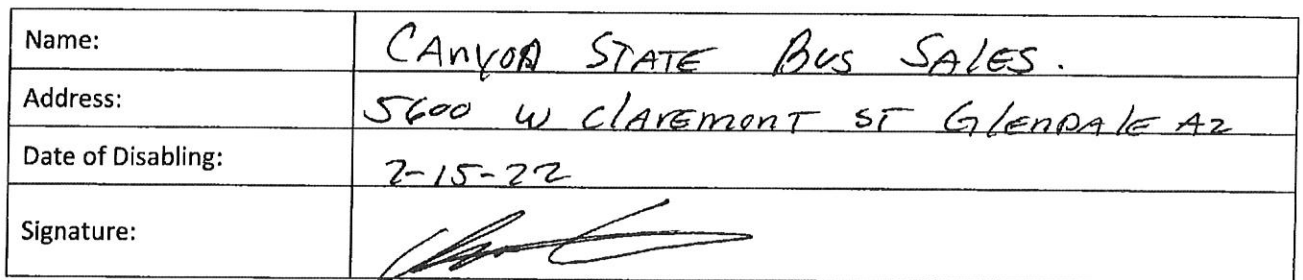 Name: CANYON STATE BUS SALES.
Address: 5600 W CLAREMONT ST GLENDALE AZ
Date of Disabling: 2-15-22
Signature: